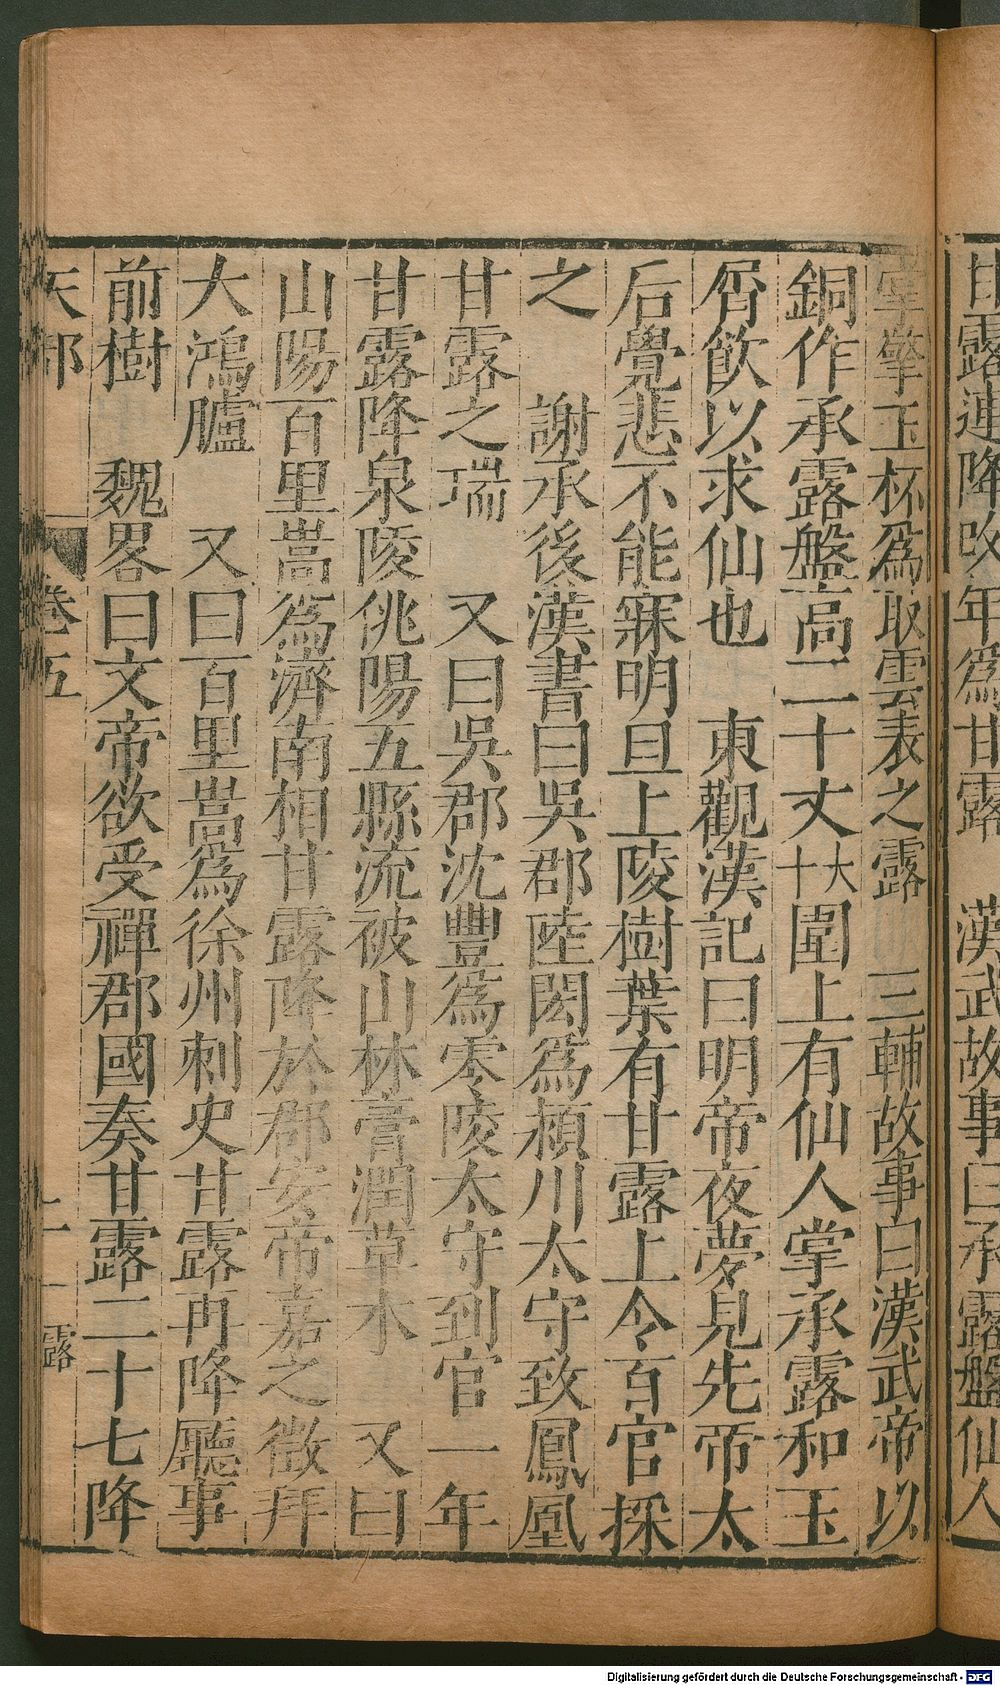 甘露連降改年爲甘露　漢武故事曰承露盤仙人
掌擎玉杯爲取雲表之露　三輔故事曰漢武帝以
銅作承露盤高二十丈大十圍上有仙人掌承露和玉
屑飲以求仙也　東觀漢記曰明帝夜夢見先帝太
后覺悲不能寐明旦上陵樹葉有甘露上令百官採
之　謝承後漢書曰吳郡陸閎爲潁川太守致鳳凰
甘露之瑞　又曰吳郡沈豐爲零陵太守到官一年
甘露降泉陵佻陽五縣流被山林膏潤草木　又曰
山陽百里嵩爲濟南相甘露降於郡安帝嘉之徵拜
大鴻臚　又曰百里嵩爲徐州刺史甘露再降廳事
前樹　魏畧曰文帝欲受禪郡國奏甘露二十七降
天部　卷五　十一　露
Digitalisierung gefördert durch die Deutsche Forschungsgemeinschaft - DFG